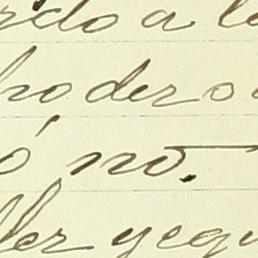 rdo a l
podero
ó no.
ller yegu